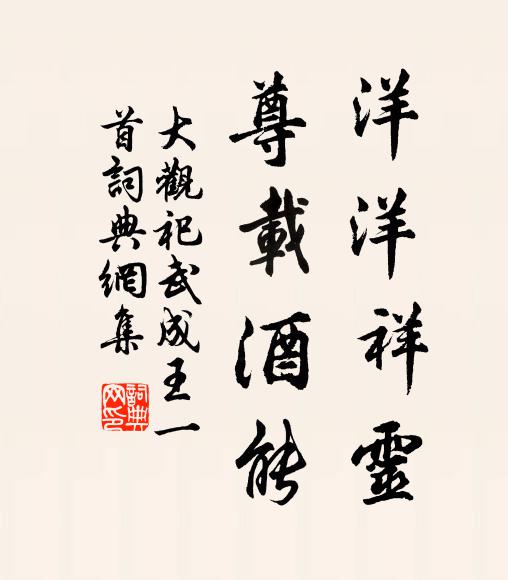 洋洋祥靈
尊載酒能
大觀祀武成王一
首詞典網集
詞典
網印